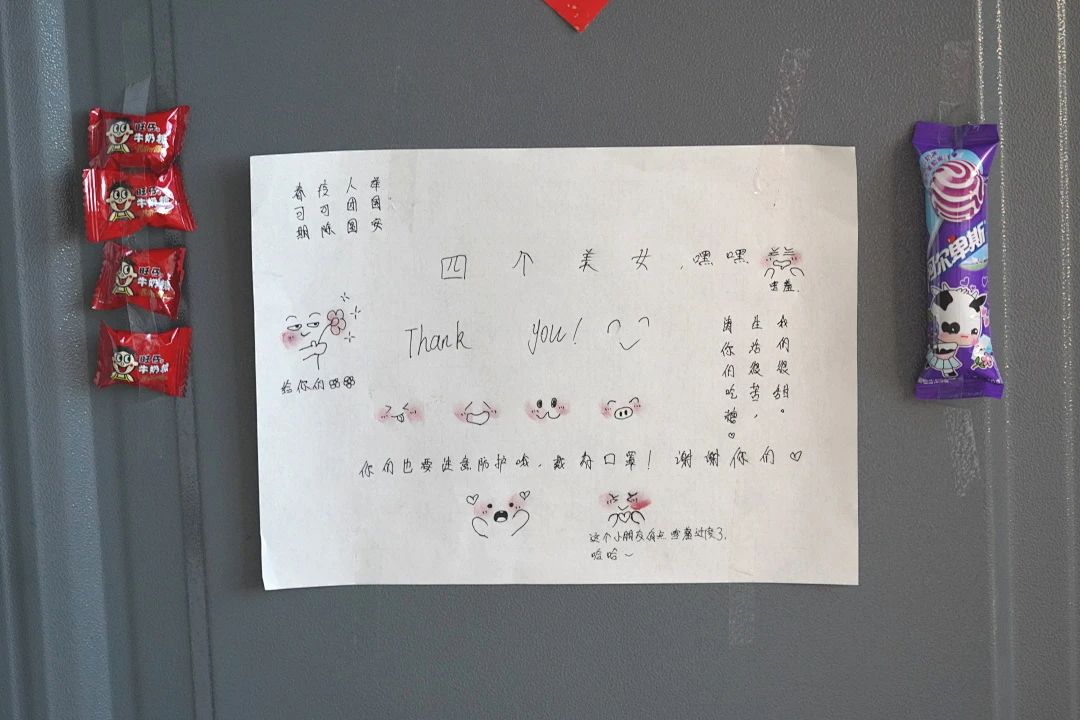 举国安
人团圆
疫可除
春可期
四个美女,嘿嘿.
害羞.
Thank you!
给你们
我们很甜。
生活很苦，
请你们吃糖♡
你们也要注意防护哦，戴好口罩！谢谢你们♡
这个小朋友有点害羞过度了,
哈哈~
旺仔
牛奶糖
旺仔
牛奶糖
旺仔
牛奶糖
旺仔
牛奶糖
阿尔卑斯